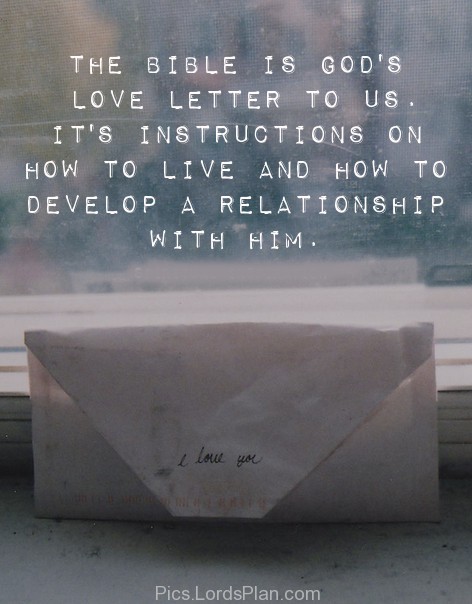 THE BIBLE IS GOD'S
LOVE LETTER TO US.
IT'S INSTRUCTIONS ON
HOW TO LIVE AND HOW TO
DEVELOP A RELATIONSHIP
WITH HIM.
I love you
Pics.LordsPlan.com